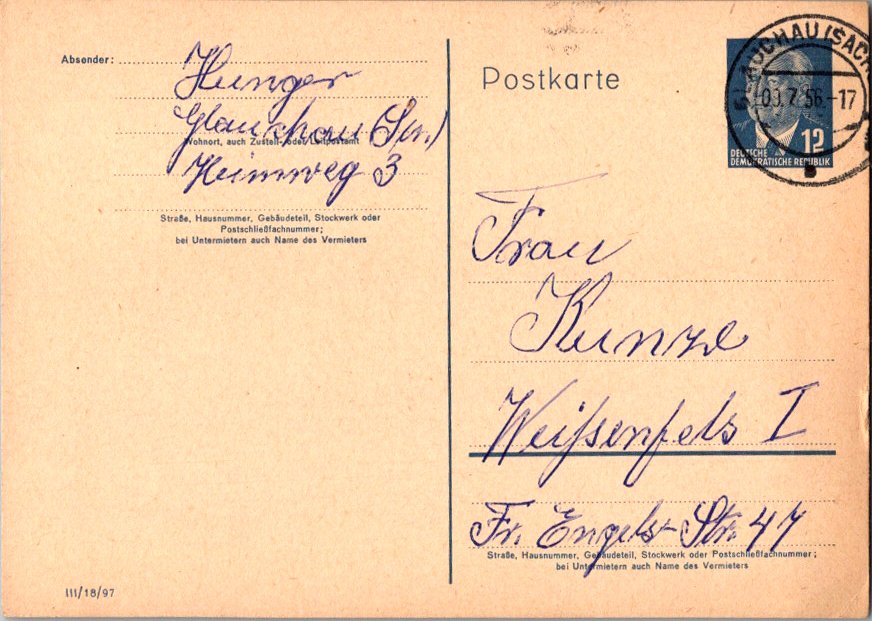 Absender:
Hunger
Glauchau (Sa.)
Wohnort, auch Zustell- oder Leitpostamt
Heimweg 3
Straße, Hausnummer, Gebäudeteil, Stockwerk oder
Postschließfachnummer;
bei Untermietern auch Name des Vermieters
III/18/97
Postkarte
GLAUCHAU (SACH
09.7.56.-17
12
DEUTSCHE
DEMOKRATISCHE REPUBLIK
Frau
Kunze
Weißenfels I
Fr. Engels-Str. 47
Straße, Hausnummer, Gebäudeteil, Stockwerk oder Postschließfachnummer;
bei Untermietern auch Name des Vermieters